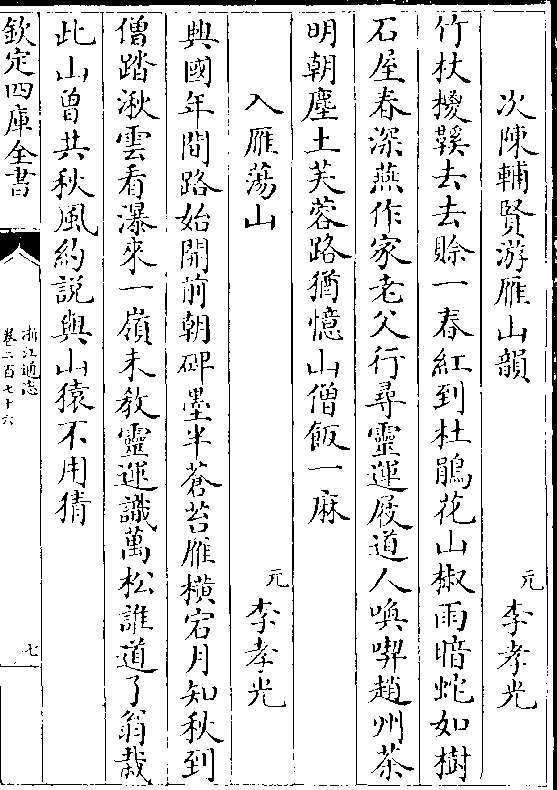 次陳輔賢游雁山韻 元 李孝光
竹杖擾鞵去去賒一春紅到杜鵑花山椒雨暗蛇如樹
石屋春深燕作家老父行尋靈運屐道人喚喫趙州茶
明朝塵土芙蓉路猶憶山僧飯一麻
入雁蕩山 元 李孝光
興國年間路始開前朝碑墨半蒼苔雁橫宕月知秋到
僧踏湫雲看瀑來一嶺未教靈運識萬松誰道了翁栽
此山曾共秋風約説與山猿不用猜
欽定四庫全書
浙江通志
卷二百七十六
七